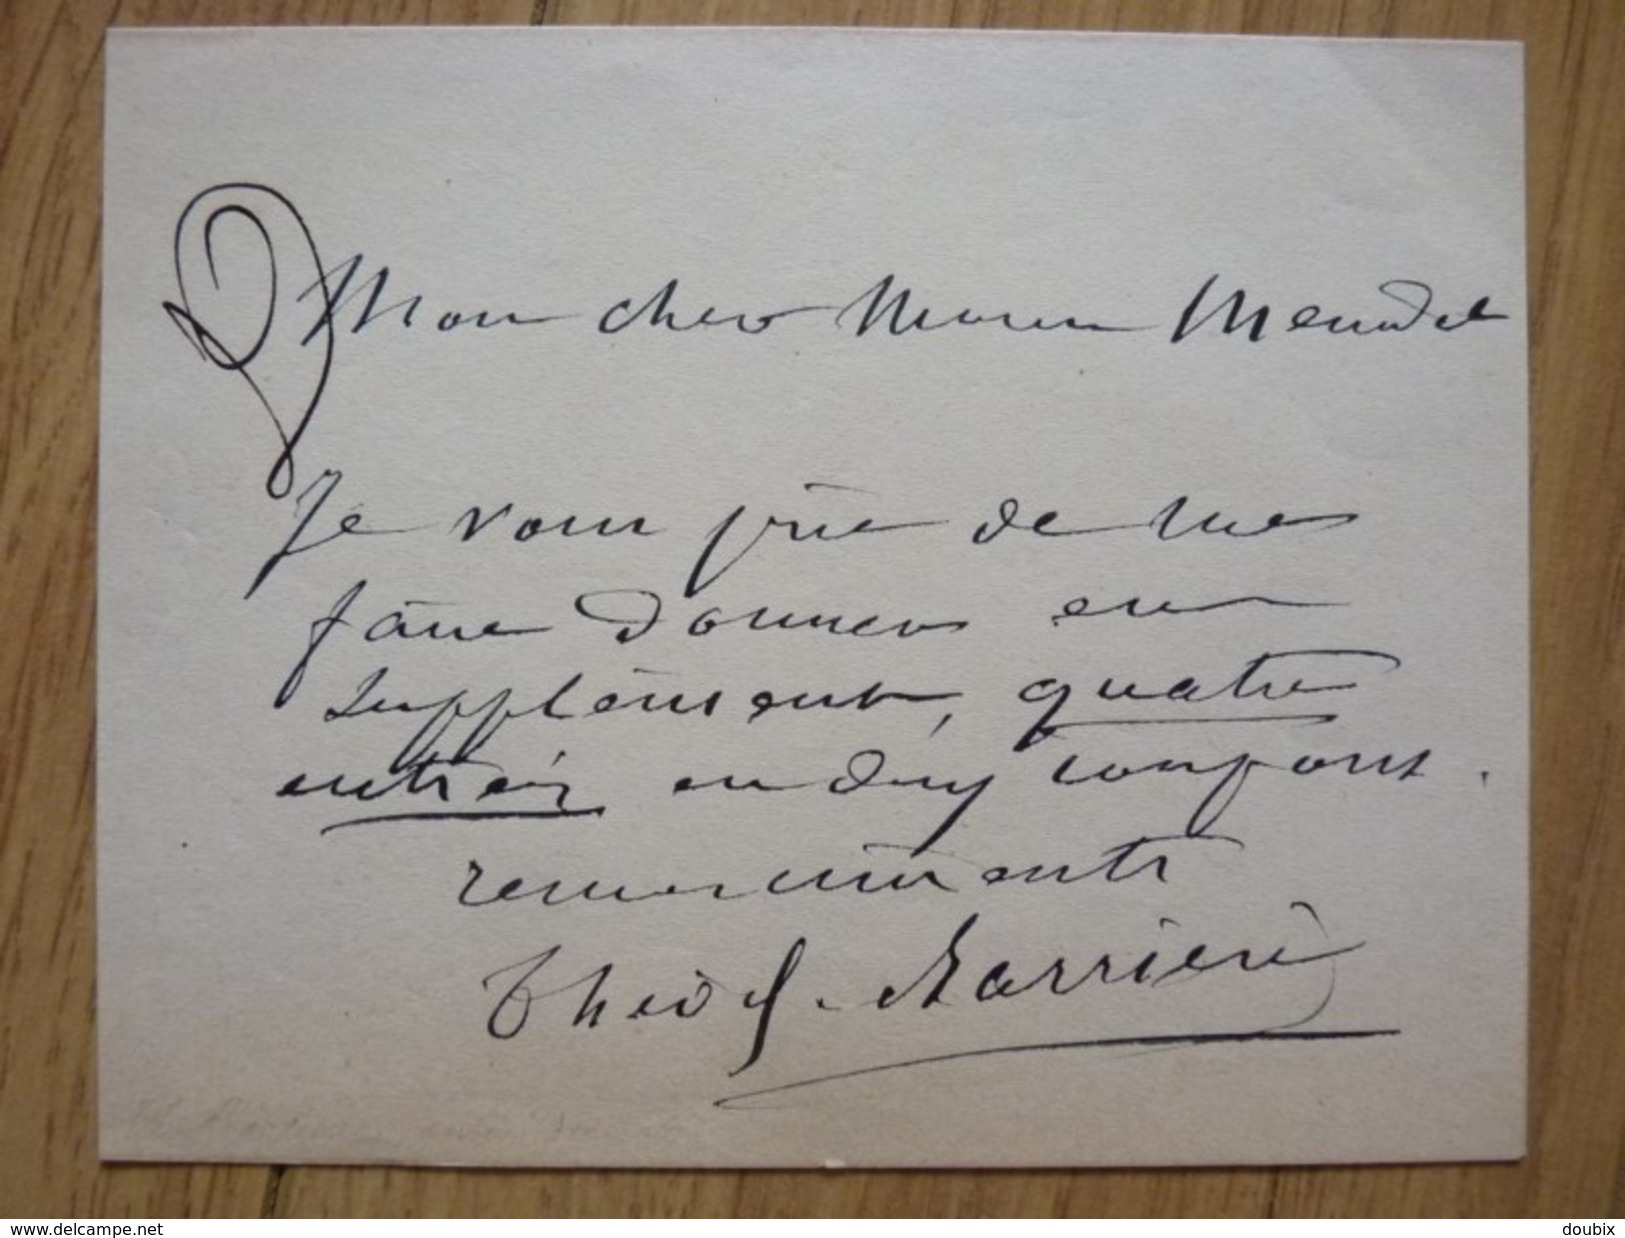 Mon cher Meudel
Je vous prie de me
faire donner en
supplément, quatre
entrées en deux coupons.
remerciments
Théod. Barrière
www.delcampe.net
doubix